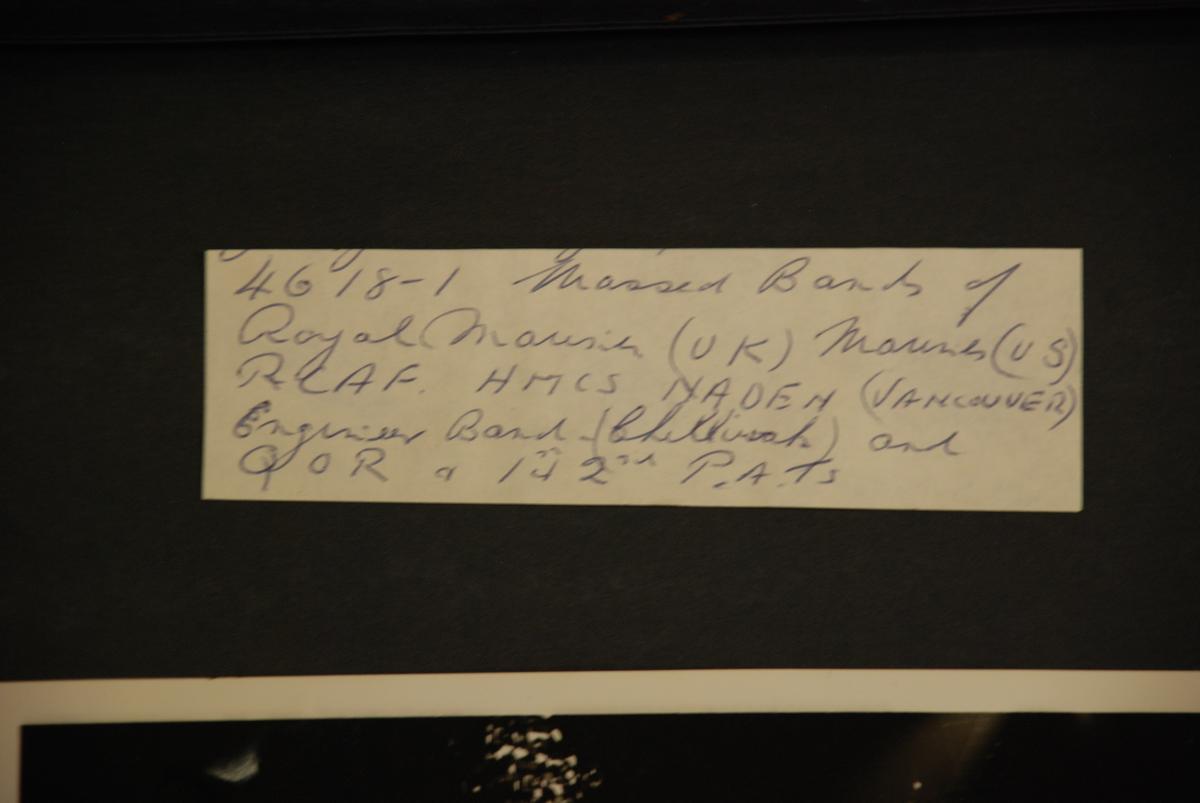 4618-1 Massed Bands of
Royal Marines (UK) Marines (US)
RCAF. HMCS NADEN (VANCOUVER)
Engineer Band (Chilliwack) and
QOR & 1st 2nd P.A.Ts